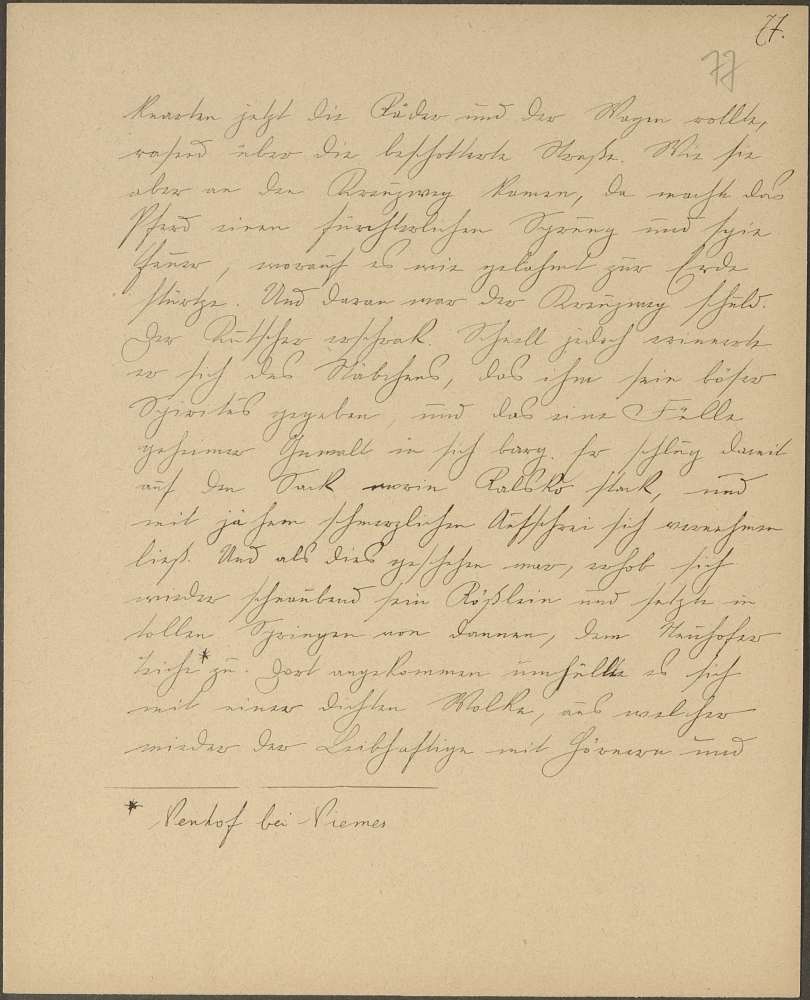 77.
77
knarten jetzt die Räder und der Wagen rollte,
rasend über die beschotterte Straße. Wie sie
aber an den Kreuzweg kamen, da macht das
Pferd einen fürchterlichen Sprung und spie
Feuer, worauf es wie gelähmt zur Erde
stürtze. Und daran war der Kreuzweg schuld.
Der Kutscher erschrak. Schnell jedoch erinnerte
er sich des Stäbchens, das ihm sein böser
Spiritus gegeben, und das eine Fülle
geheimer Gewalt in sich barg. Er schlug damit
auf den Sack worin Ralsko stack, und
mit jähem schmerzlichen Aufschrei sich vernehmen
ließ. Und als dies geschehen war, erhob sich
wieder schnaubend sein Rößlein und setzte in
tollen Springen von dannen, dem Neuhofer
Teiche * zu. Dort angekommen umhüllte es sich
mit einer dichten Wolke, aus welcher
wieder der Leibhaftige mit Hörnern und
* Neuhof bei Niemes